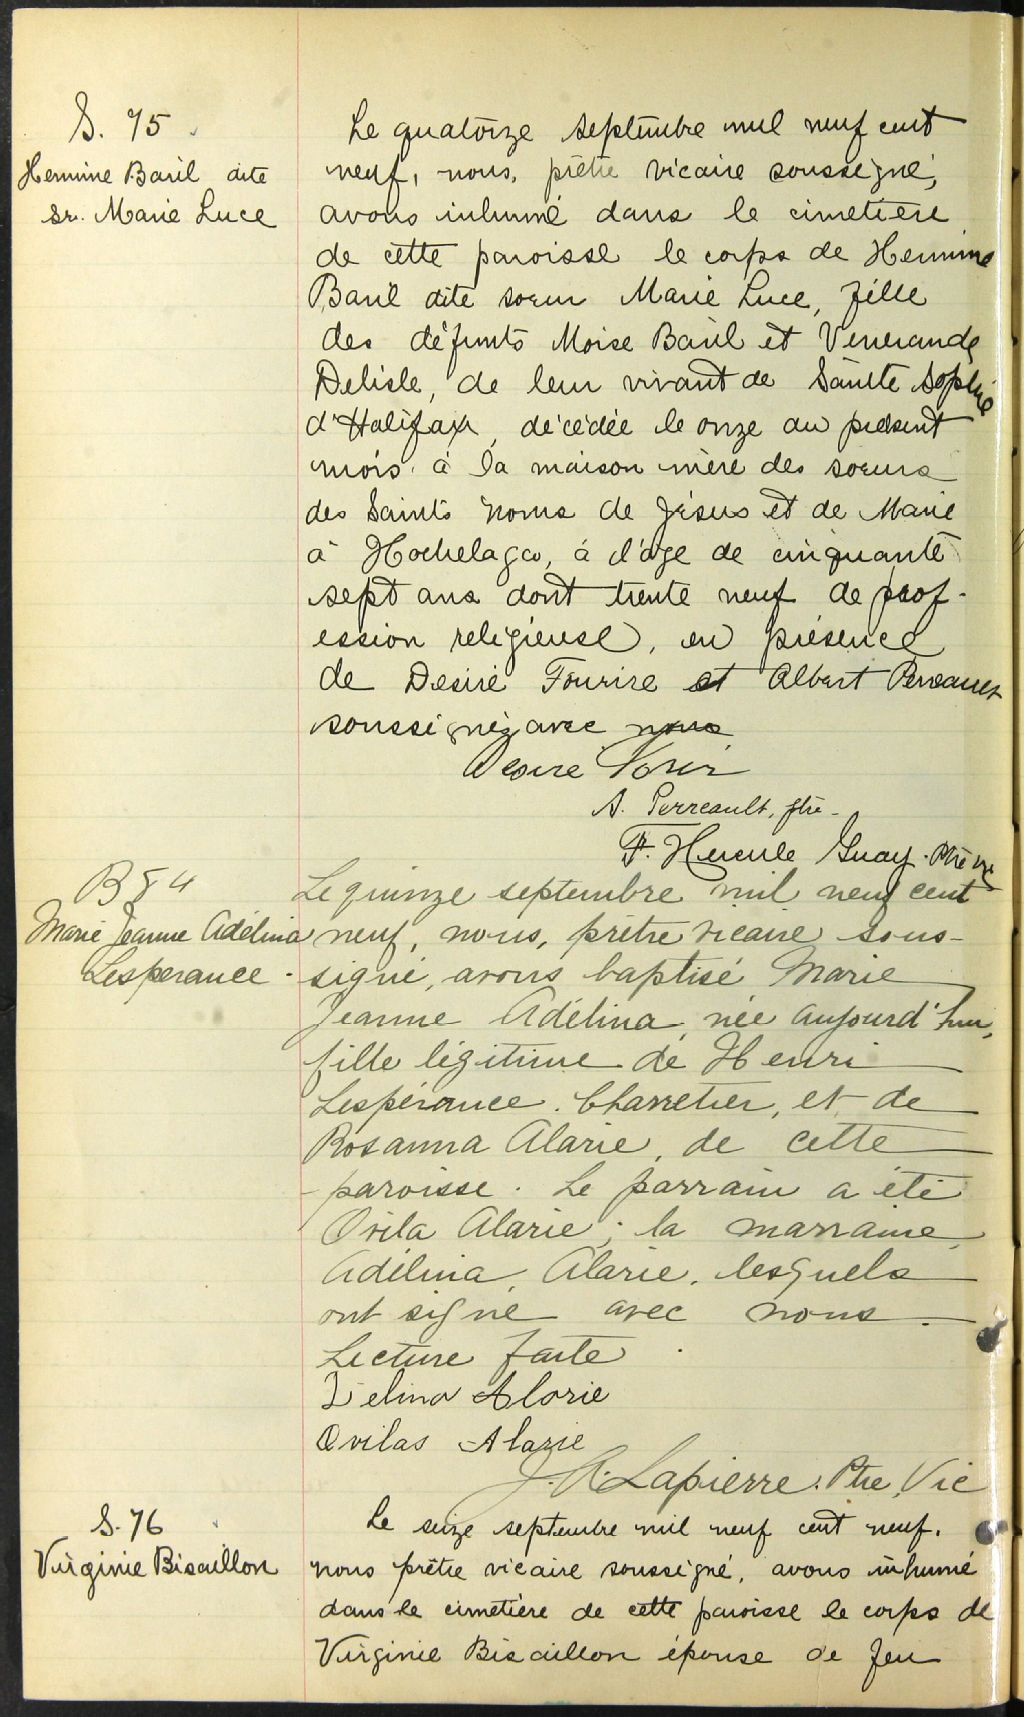 S. 75
Hermine Baril dite
Sr. Marie Luce
Le quatorze septembre mil neuf cent
neuf, nous, prêtre vicaire soussigné,
avons inhumé dans le cimetière
de cette paroisse le corps de Hermine
Baril dite soeur Marie Luce, fille
des défunts Moise Baril et Vénérande
Delisle, de leur vivant de Sainte Sophie
d'Halifax, décédée le onze du présent
mois à la maison mère des soeurs
des Saints Noms de Jésus et de Marie
à Hochelaga, à l'âge de cinquante
sept ans dont trente neuf de prof-
ession religieuse, en présence
de Desiré Fourire et Albert Perreault
soussignés avec nous
Desire
A. Perreault, ptre
F. Hercule Guay. Ptre vic
B 84
Marie Jeanne Adélina
Lesperance.
Le quinze septembre mil neuf cent
neuf, nous, prêtre vicaire sous-
signé, avons baptisé Marie
Jeanne Adélina, née aujourd'hui,
fille légitime de Henri
Lespérance. Charretier, et de
Rosanna Alarie, de cette
paroisse. Le parrain a été
Ovila Alarie; la marraine,
Adélina Alarie, lesquels
ont signé avec nous.
Lecture faite.
Zelina Alarie
Ovilas Alarie
J. A. Lapierre. Ptre, Vic
S. 76
Virginie Bisaillon
Le seize septembre mil neuf cent neuf,
nous prêtre vicaire soussigné, avons inhumé
dans le cimetière de cette paroisse le corps de
Virginie Bisaillon épouse de feu